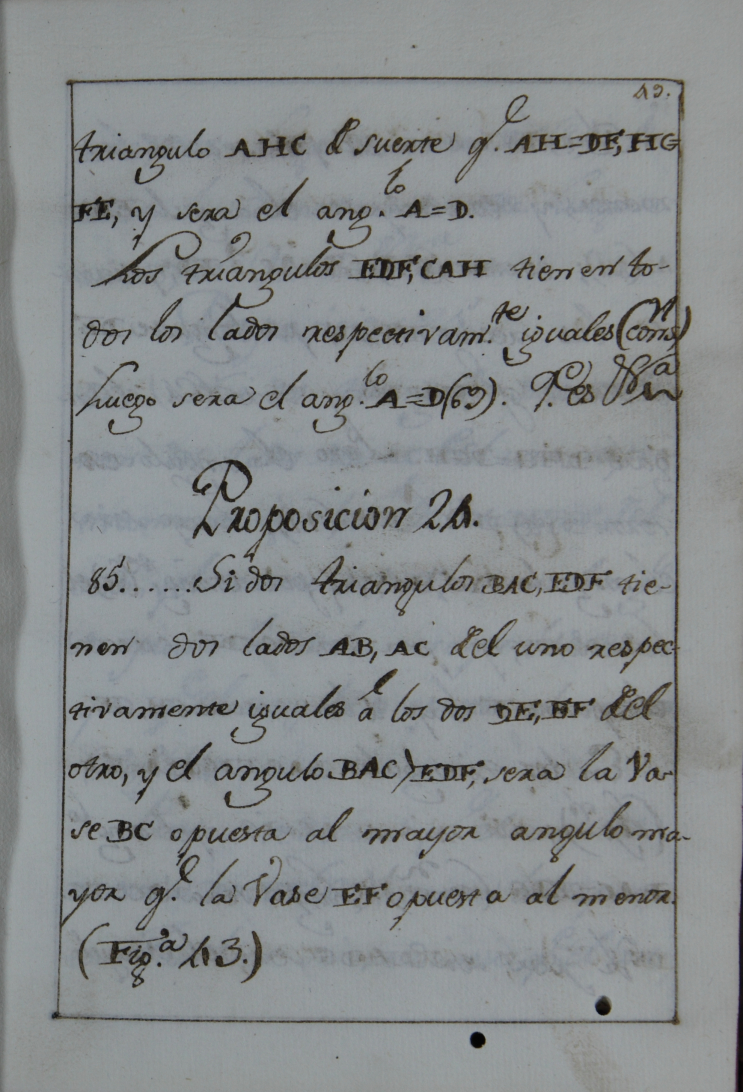 49.
triangulo AHC de suerte q.e AH=DF, HC
FE, y sera el ang.lo A=D.
Los triangulos EDF, CAH tienen to-
dos los lados respectivam.te iguales (const.n)
Luego sera el ang.lo A=D (69). Q.e es
Proposicion 24.
85.......Si dos triangulos BAC, EDF tie-
nen dos lados AB, AC del uno respec-
tivamente iguales á los dos DE, DF del
otro, y el angulo BAC > EDF, sera la Va-
se BC opuesta al mayor angulo ma-
yor q.e la Vase EF opuesta al menor.
(Fig.a 43.)